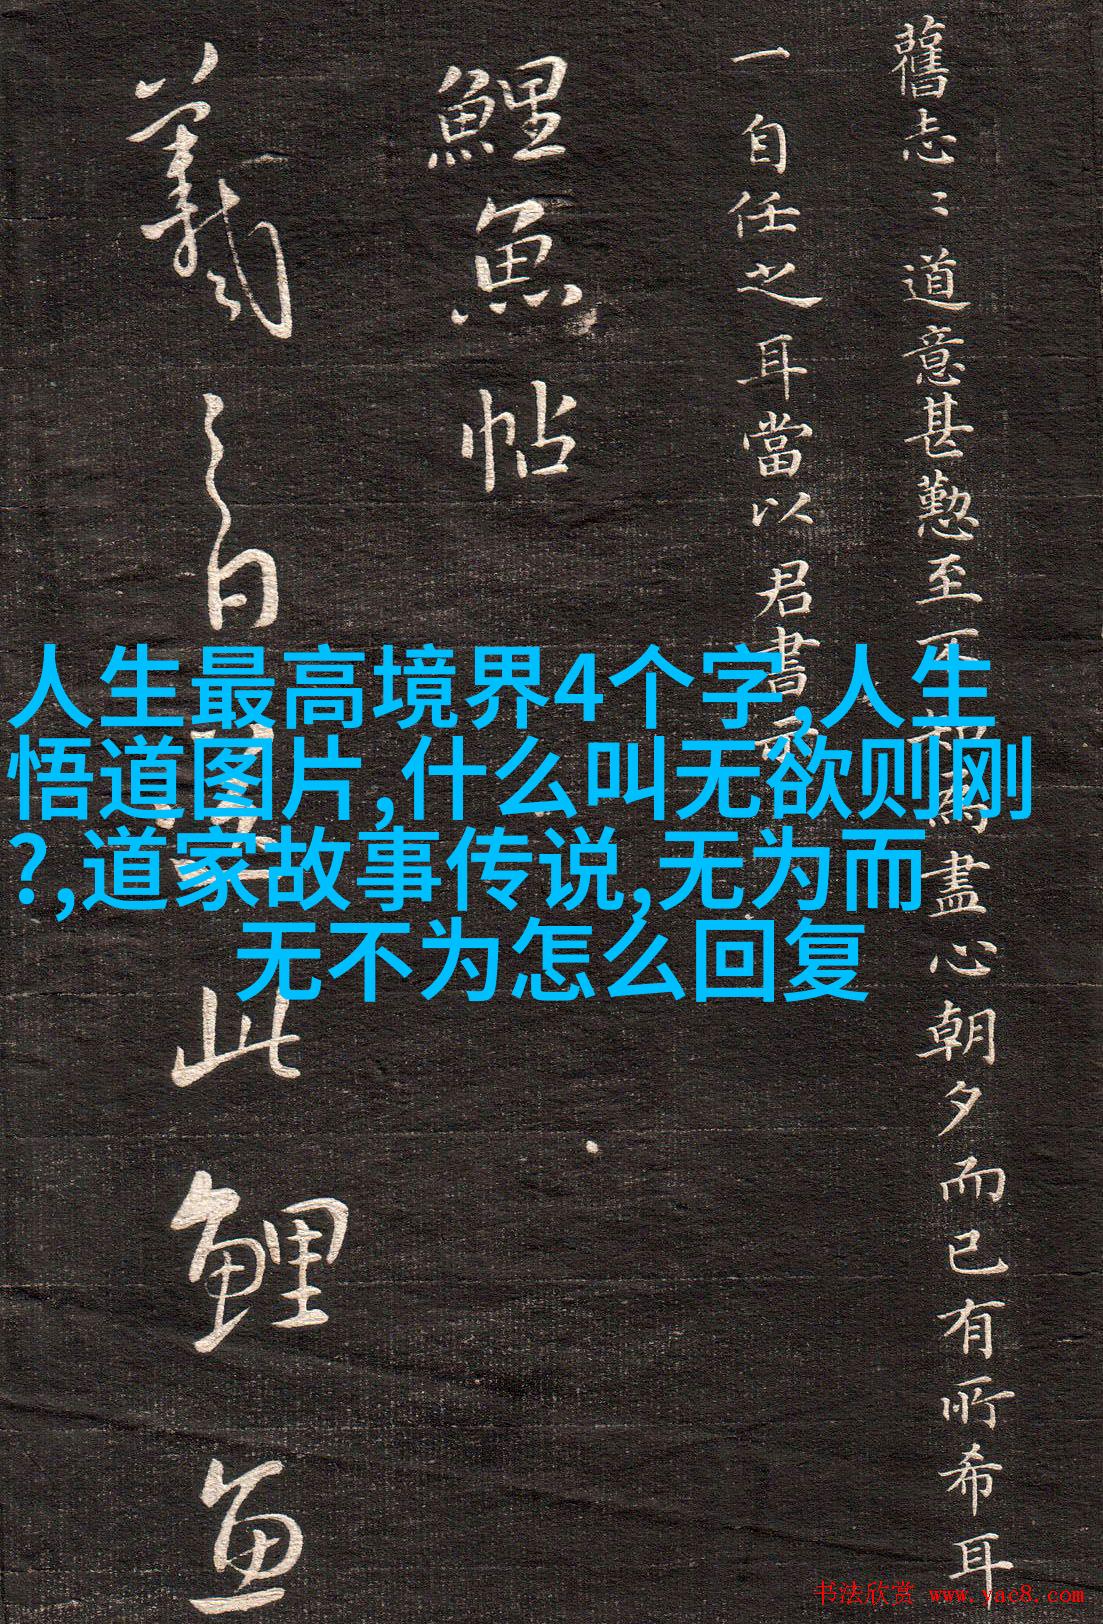 舊志〻道意甚懃至不
盡心朝夕而已有所希耳
一自任之耳當以君書示
鯉魚帖
羲之白
此鯉魚
人生最高境界4个字,人生
悟道图片,什么叫无欲则刚
?,道家故事传说,无为而
无不为怎么回复
书法欣赏 www.yac8.com